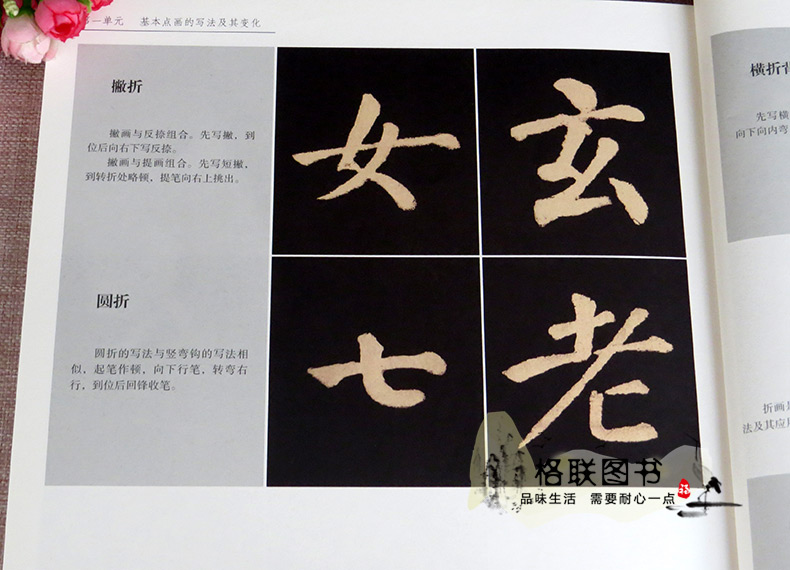 第一单元 基本点画的写法及其变化
撇折
撇画与反捺组合。先写撇，到
位后向右下写反捺。
撇画与提画组合。先写短撇，
到转折处略顿，提笔向右上挑出。
女 玄
圆折
圆折的写法与竖弯钩的写法相
似，起笔作顿，向下行笔，转弯右
行，到位后回锋收笔。
七 老
横折
先写横
向下向内弯
折画
法及其应
格联图书
品味生活 需要耐心一点